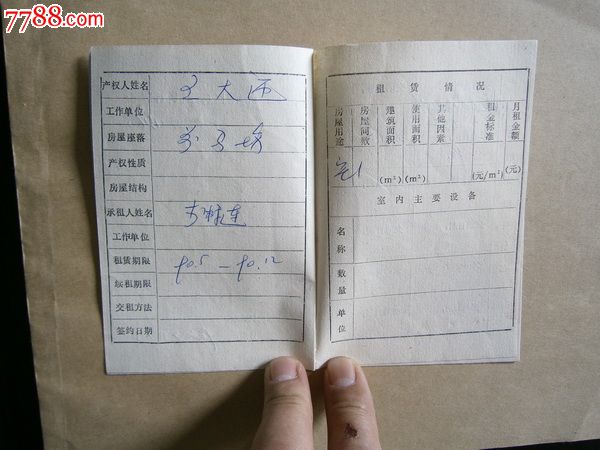 7788.com
产权人姓名 王大
工作单位
房屋座落
产权性质
房屋结构
承租人姓名
工作单位
租赁期限 90.5 — 90.12
续租期限
交租方法
签约日期
租赁情况
房屋用途 房屋间数 建筑面积 使用面积 其他因素 租金标准 月租金额
(m²) (m²) (元/m²) (元)
室内主要设备
名称
数量
单位
7788.com